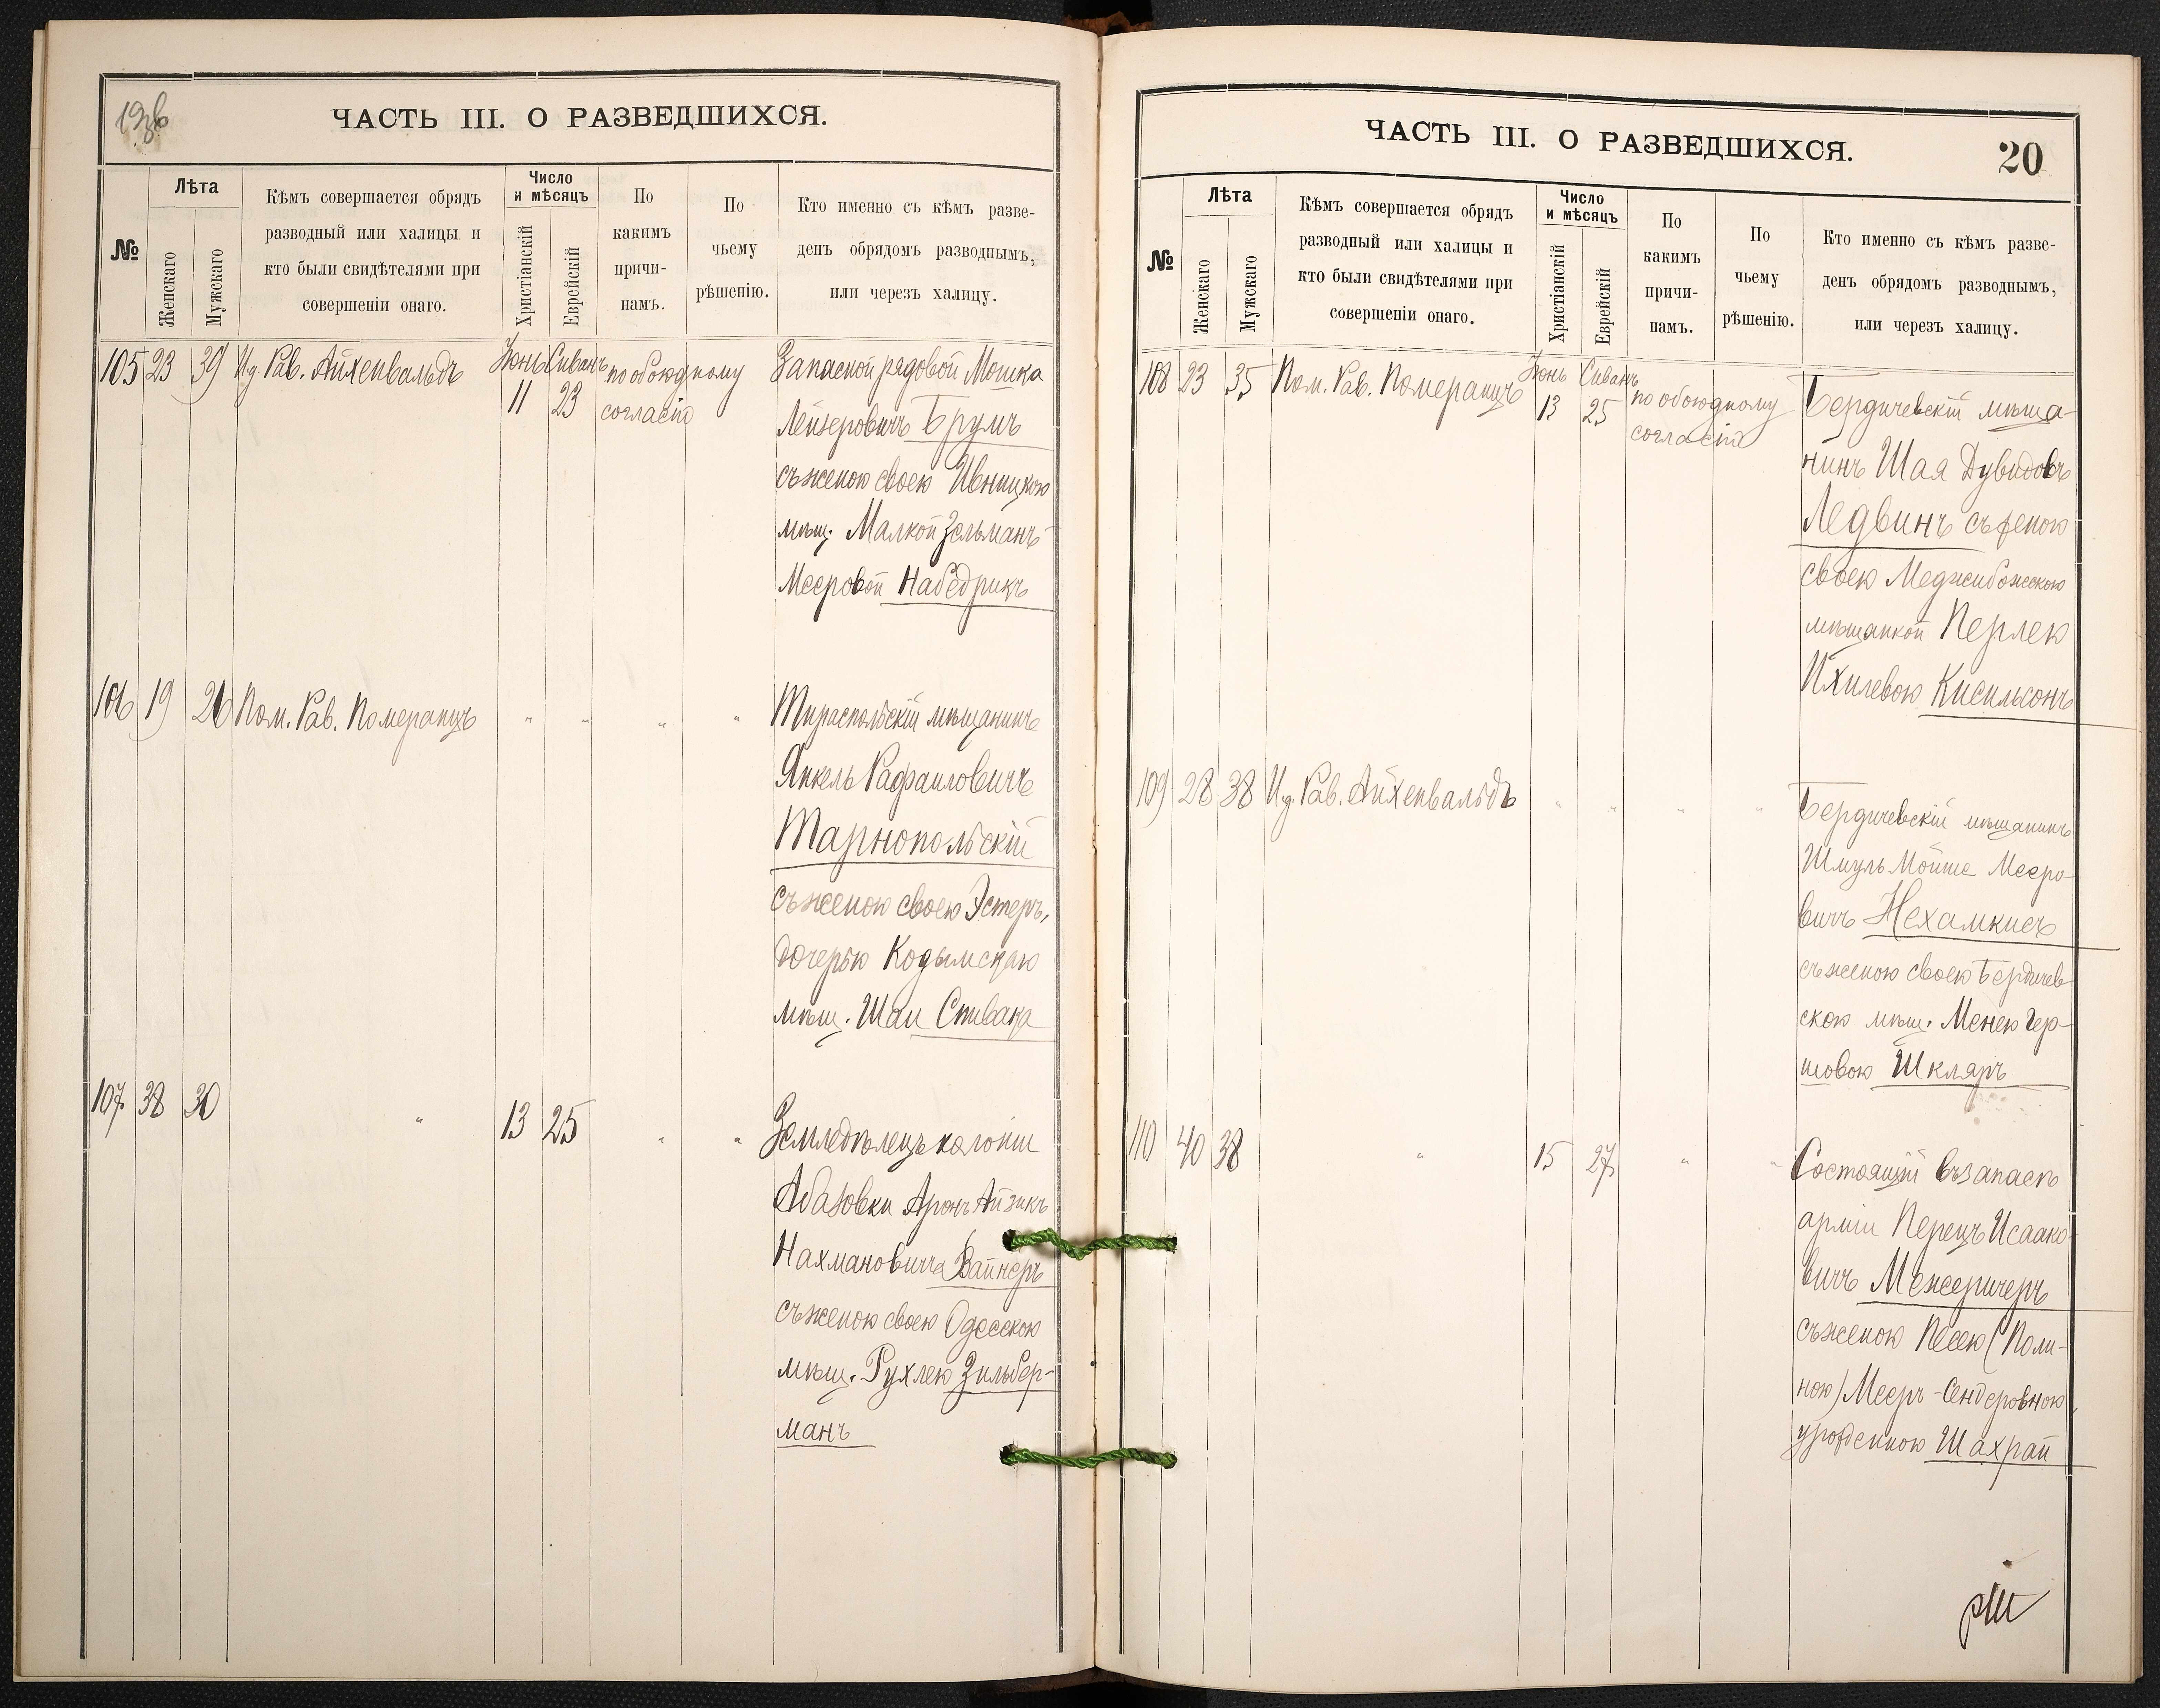 19об
ЧАСТЬ III. О РАЗВЕДШИХСЯ.
№
Лѣта
Женскаго
Мужскаго
Кѣмъ совершается обрядъ
разводный или халицы и
кто были свидѣтелями при
совершеніи онаго.
Число
и мѣсяцъ
Христіанскій
Еврейскій
По
какимъ
причи-
намъ.
По
чьему
рѣшенію.
Кто именно съ кѣмъ разве-
денъ обрядомъ разводнымъ,
или черезъ халицу.
105 23 39 И.д. Рав. Айхенвальдъ Іюнь Сиванъ по обоюдному Запасной рядовой Мошка
11 23 согласію Лейзеровичъ Брумъ
съ женою своею Ивницкою
мѣщ. Малкой Зельманъ-
Мееровой Набедрикъ
106 19 26 Пом. Рав. Померанцъ " " " " Тираспольскій мѣщанинъ
Янкель Рафаиловичъ
Тарнопольскій
съ женою своею Эстеръ,
дочерью Кодымскаго
мѣщ. Шаи Спивака
107 38 30 " 13 25 " " Земледѣлецъ колоніи
Абазовки Аронъ Айзикъ
Нахмановичъ Вайнеръ
съ женою своею Одесскою
мѣщ. Рухлею Зильбер-
манъ
ЧАСТЬ III. О РАЗВЕДШИХСЯ.
20
№
Лѣта
Женскаго
Мужскаго
Кѣмъ совершается обрядъ
разводный или халицы и
кто были свидѣтелями при
совершеніи онаго.
Число
и мѣсяцъ
Христіанскій
Еврейскій
По
какимъ
причи-
намъ.
По
чьему
рѣшенію.
Кто именно съ кѣмъ разве-
денъ обрядомъ разводнымъ,
или черезъ халицу.
108 23 35 Пом. Рав. Померанцъ Іюнь Сиванъ по обоюдному Бердичевскій мѣща-
13 25 согласію
нинъ Шая Дувидовъ
Ледвинъ съ женою
своею Меджибожскою
мѣщанкой Перлею
Ихилевою Кисильсонъ
109 28 38 И.д. Рав. Айхенвальдъ " " " " Бердичевскій мѣщанинъ
Шмуль Мойше Мееро-
вичъ Нехамкисъ
съ женою своею Бердичев-
скою мѣщ. Менею Гер-
шовою Шкляръ
110 40 38 " 15 27 " " Состоящій въ запасѣ
арміи Перецъ Исаако-
вичъ Межеричеръ
съ женою Песею (Поли-
ною) Мееръ-Сендеровною,
урожденною Шахрай